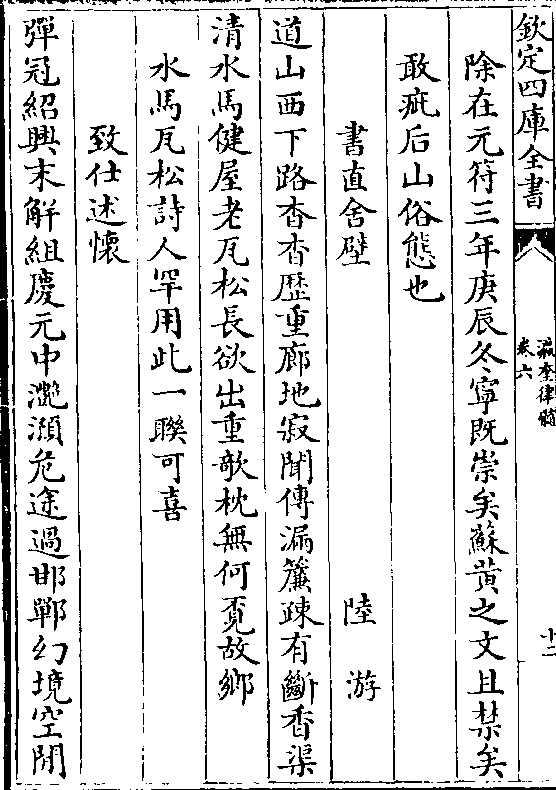 欽定四庫全書
瀛奎律髓
卷六
十二
除在元符三年庚辰冬寧既崇矣蘇黄之文且禁矣
敢疵后山俗態也
書直舍壁 陸游
道山西下路杳杳歴重廊地寂聞傳漏簾疎有斷香渠
清水馬健屋老瓦松長欲出重欹枕無何覔故鄉
水馬瓦松詩人罕用此一聯可喜
致仕述懷
彈冠紹興末解組慶元中灔澦危途過邯鄲幻境空閒